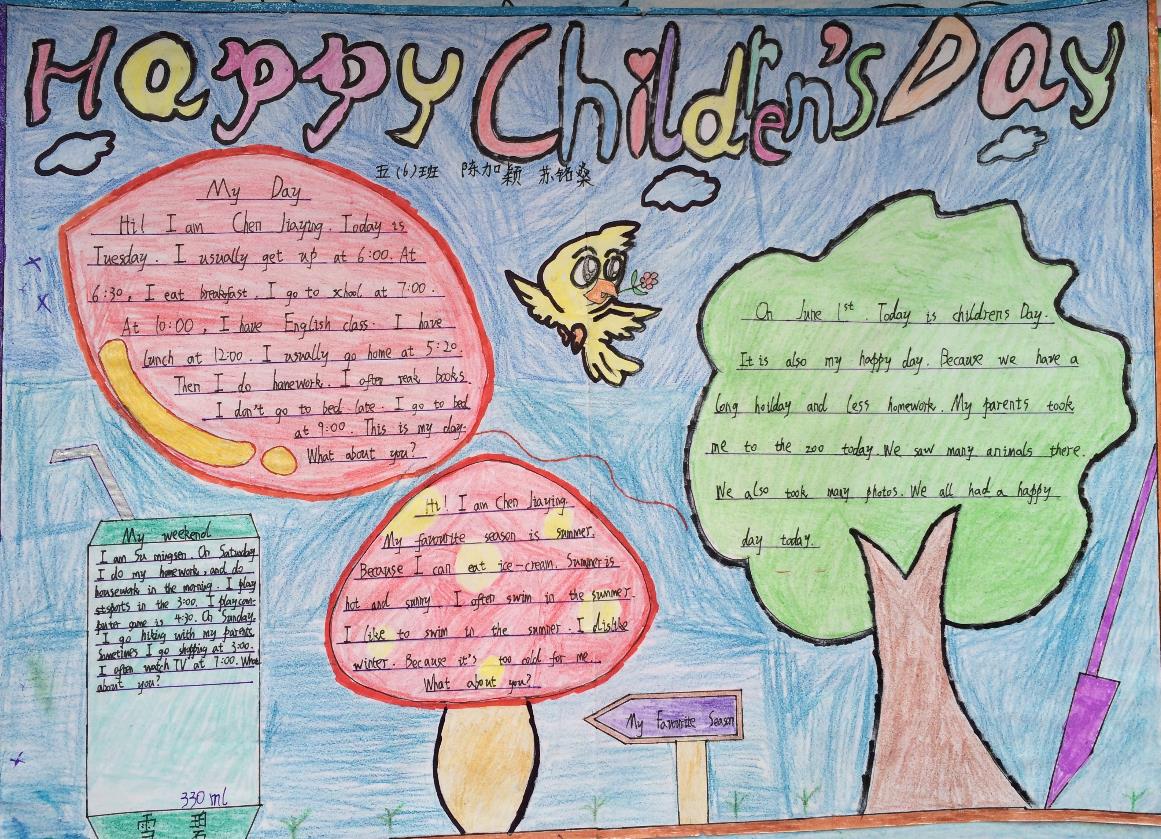 Happy Children's Day
五(6)班 陈加颖 苏铭燊
My Day
Hi! I am Chen Jiaying. Today is
Tuesday. I usually get up at 6:00. At
6:30, I eat breakfast. I go to school at 7:00.
At 10:00, I have English class. I have
lunch at 12:00. I usually go home at 5:20.
Then I do homework. I often reak books.
I don't go to bed late. I go to bed
at 9:00. This is my day.
What about you?
On June 1st. Today is childrens Day.
It is also my happy day. Because we have a
long hoilday and less homework. My parents took
me to the zoo today. We saw many animals there.
We also took many photos. We all had a happy
day today.
Hi! I am Chen Jiaying.
My favourite season is summer.
Because I can eat ice-cream. Summer is
hot and sunny. I often swim in the summer.
I like to swim in the summer. I dislike
winter. Because it's too cold for me.
What about you?
My Favourite Season
My weekend
I am Su mingsen. On Saturday
I do my homework, and do
housework in the morning. I play
sports in the 3:00. I play com-
puter game is 4:30. On Sunday.
I go hiking with my parents
Sometimes I go shopping at 3:00.
I often watch TV at 7:00. What
about you?
330ml
雪 碧